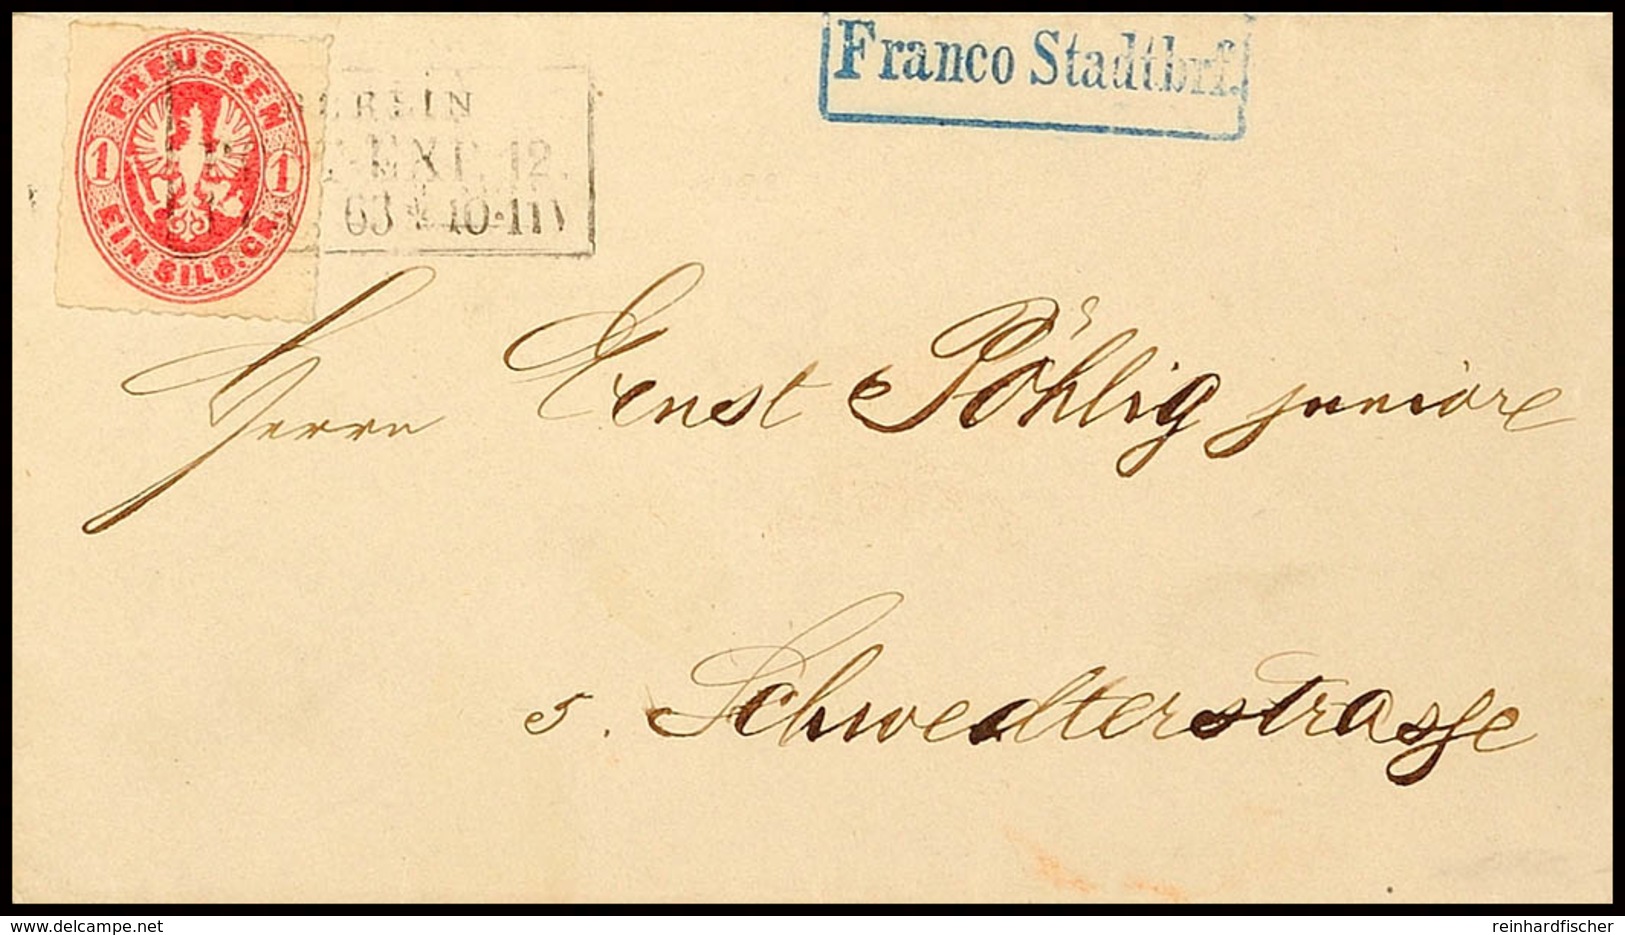 PREUSSEN
1 1
EIN SILB. GR.
BERLIN
EXP. 12.
63 10-11 V
Franco Stadtbrf.
Herrn Ernst Pöhlig juniore
5. Schwedterstrasse
reinhardfischer